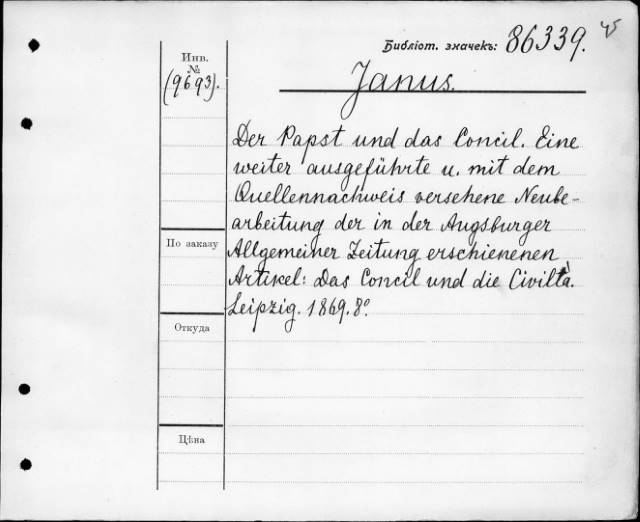 45
Библіот. значекъ: 86339.
Инв.
№
(9693).
Janus.
Der Papst und das Concil. Eine
weiter ausgeführte u. mit dem
Quellennachweis versehene Neube-
arbeitung der in der Augsburger
Allgemeiner Zeitung erschienenen
Artikel: Das Concil und die Civiltà.
Leipzig. 1869. 8º.
По заказу
Откуда
Цѣна